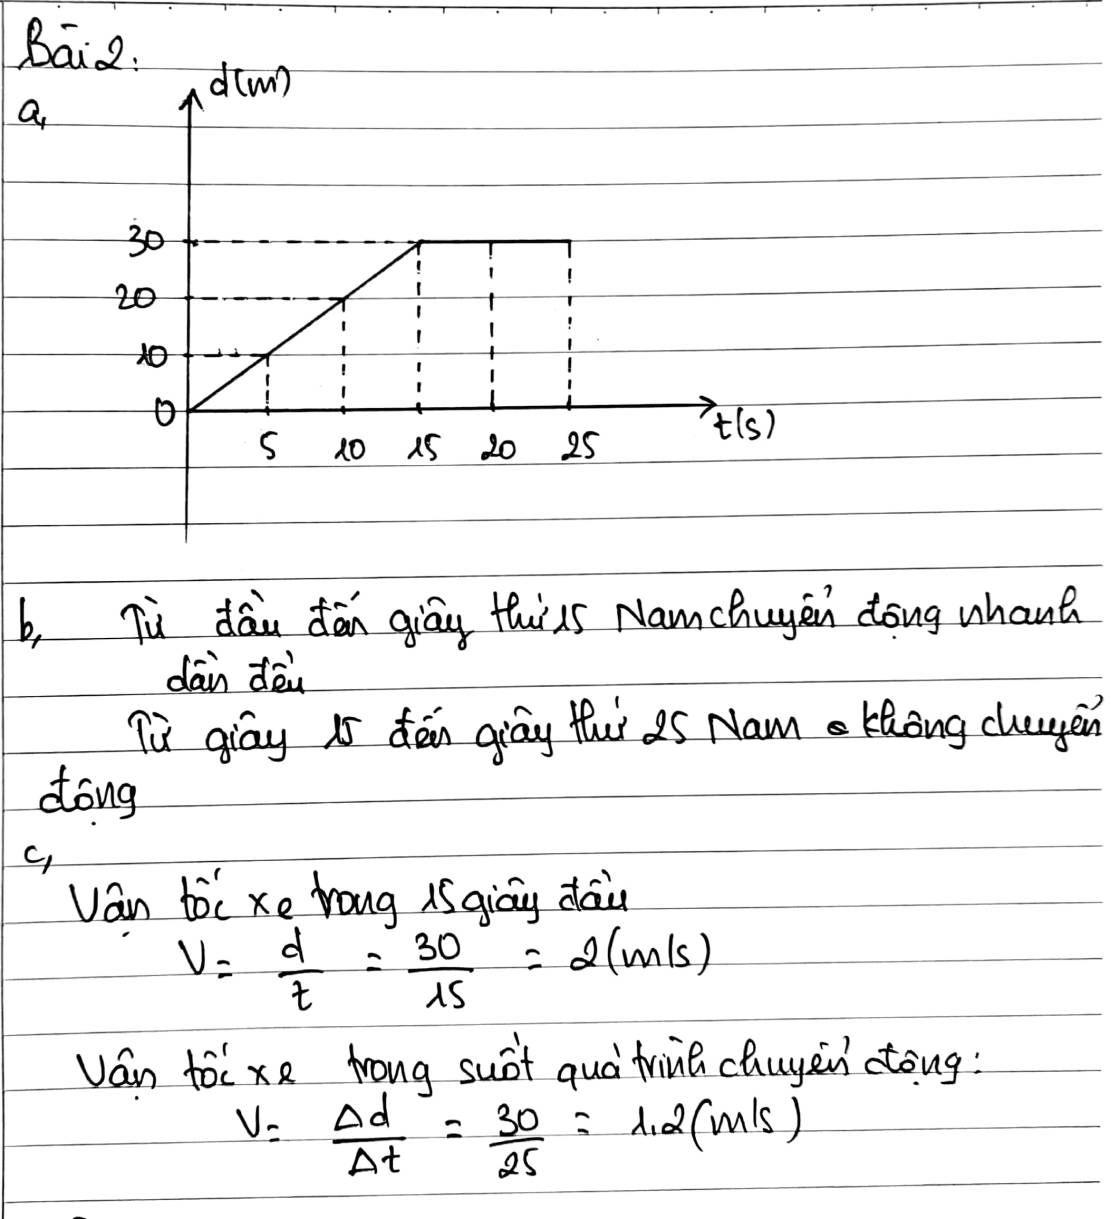 Bài 2:
d(m)
a,
30
20
10
0
5 10 15 20 25
t(s)
b, Từ đầu đến giây thứ 15 Nam chuyển động nhanh
dần đều
Từ giây 15 đến giây thứ 25 Nam không chuyển
động
c,
Vận tốc xe trong 15 giây đầu
V = d/t = 30/15 = 2 (m/s)
Vận tốc xe trong suốt quá trình chuyển động:
V = Δd/Δt = 30/25 = 1.2 (m/s)